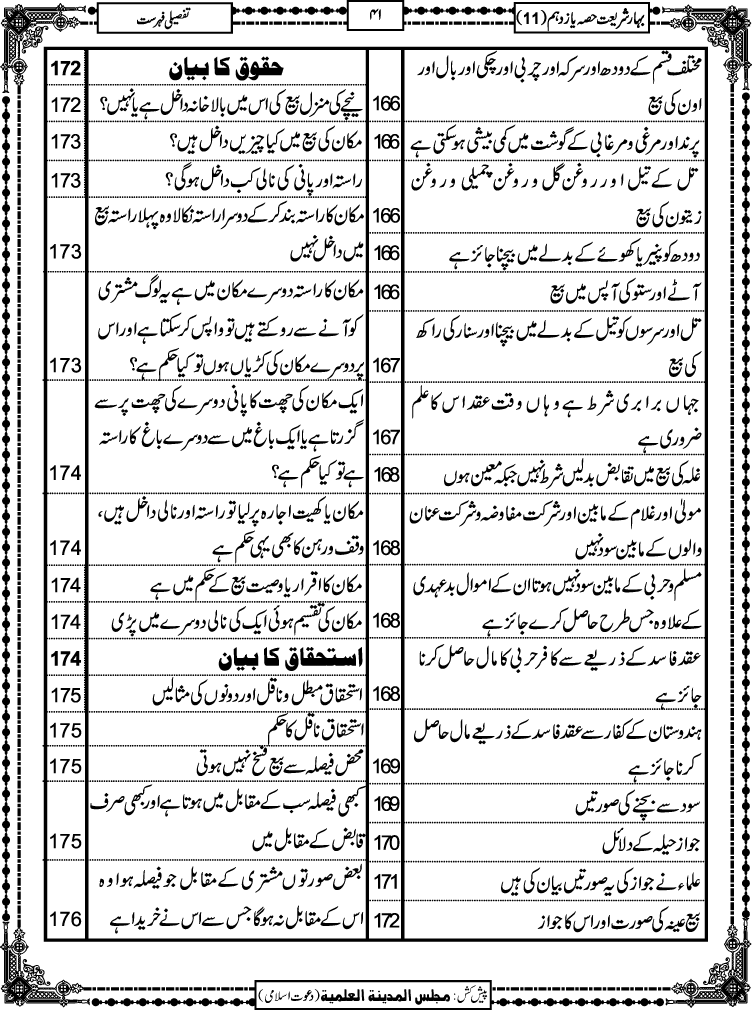 بہار شریعت حصہ یازدہم (11)
۴۱
تفصیلی فہرست
مختلف قسم کے دودھ اور سرکہ اور چربی اور چکی اور بال اور
اون کی بیع 166
پرند اور مرغی و مرغابی کے گوشت میں کمی بیشی ہوسکتی ہے 166
تل کے تیل اور روغن گل و روغن چمیلی و روغن
زیتون کی بیع 166
دودھ کو پنیر یا کھوئے کے بدلے میں بیچنا جائز ہے 166
آٹے اور ستو کی آپس میں بیع 166
تل اور سرسوں کو تیل کے بدلے میں بیچنا اور سنار کی راکھ
کی بیع 167
جہاں برابری شرط ہے وہاں وقت عقد اس کا علم
ضروری ہے 167
غلہ کی بیع میں تقابض بدلین شرط نہیں جبکہ معین ہوں 168
مولیٰ اور غلام کے مابین اور شرکت مفاوضہ و شرکت عنان
والوں کے مابین سود نہیں 168
مسلم و حربی کے مابین سود نہیں ہوتا ان کے اموال بدعہدی
کے علاوہ جس طرح حاصل کرے جائز ہے 168
عقد فاسد کے ذریعے سے کافر حربی کا مال حاصل کرنا
جائز ہے 168
ہندوستان کے کفار سے عقد فاسد کے ذریعے مال حاصل
کرنا جائز ہے 169
سود سے بچنے کی صورتیں 169
جواز حیلہ کے دلائل 170
علماء نے جواز کی یہ صورتیں بیان کی ہیں 171
بیع عینہ کی صورت اور اس کا جواز 172
حقوق کا بیان 172
نیچے کی منزل بیع کی اس میں بالا خانہ داخل ہے یا نہیں؟ 172
مکان کی بیع میں کیا چیزیں داخل ہیں؟ 173
راستہ اور پانی کی نالی کب داخل ہوگی؟ 173
مکان کا راستہ بند کرکے دوسرا راستہ نکالا وہ پہلا راستہ بیع
میں داخل نہیں 173
مکان کا راستہ دوسرے مکان میں ہے یہ لوگ مشتری
کو آنے سے روکتے ہیں تو واپس کرسکتا ہے اور اس
پر دوسرے مکان کی کڑیاں ہوں تو کیا حکم ہے؟ 173
ایک مکان کی چھت کا پانی دوسرے کی چھت پر سے
گزرتا ہے یا ایک باغ میں سے دوسرے باغ کا راستہ
ہے تو کیا حکم ہے؟ 174
مکان یا کھیت اجارہ پر لیا تو راستہ اور نالی داخل ہیں،
وقف و رہن کا بھی یہی حکم ہے 174
مکان کا اقرار یا وصیت بیع کے حکم میں ہے 174
مکان کی تقسیم ہوئی ایک کی نالی دوسرے میں پڑی 174
استحقاق کا بیان 174
استحقاق مبطل و ناقل اور دونوں کی مثالیں 175
استحقاق ناقل کا حکم 175
محض فیصلہ سے بیع فسخ نہیں ہوتی 175
کبھی فیصلہ سب کے مقابل میں ہوتا ہے اور کبھی صرف
قابض کے مقابل میں 175
بعض صورتوں مشتری کے مقابل جو فیصلہ ہوا وہ
اس کے مقابل نہ ہوگا جس سے اس نے خریدا ہے 176
پیش کش: مجلس المدینۃ العلمیۃ (دعوت اسلامی)